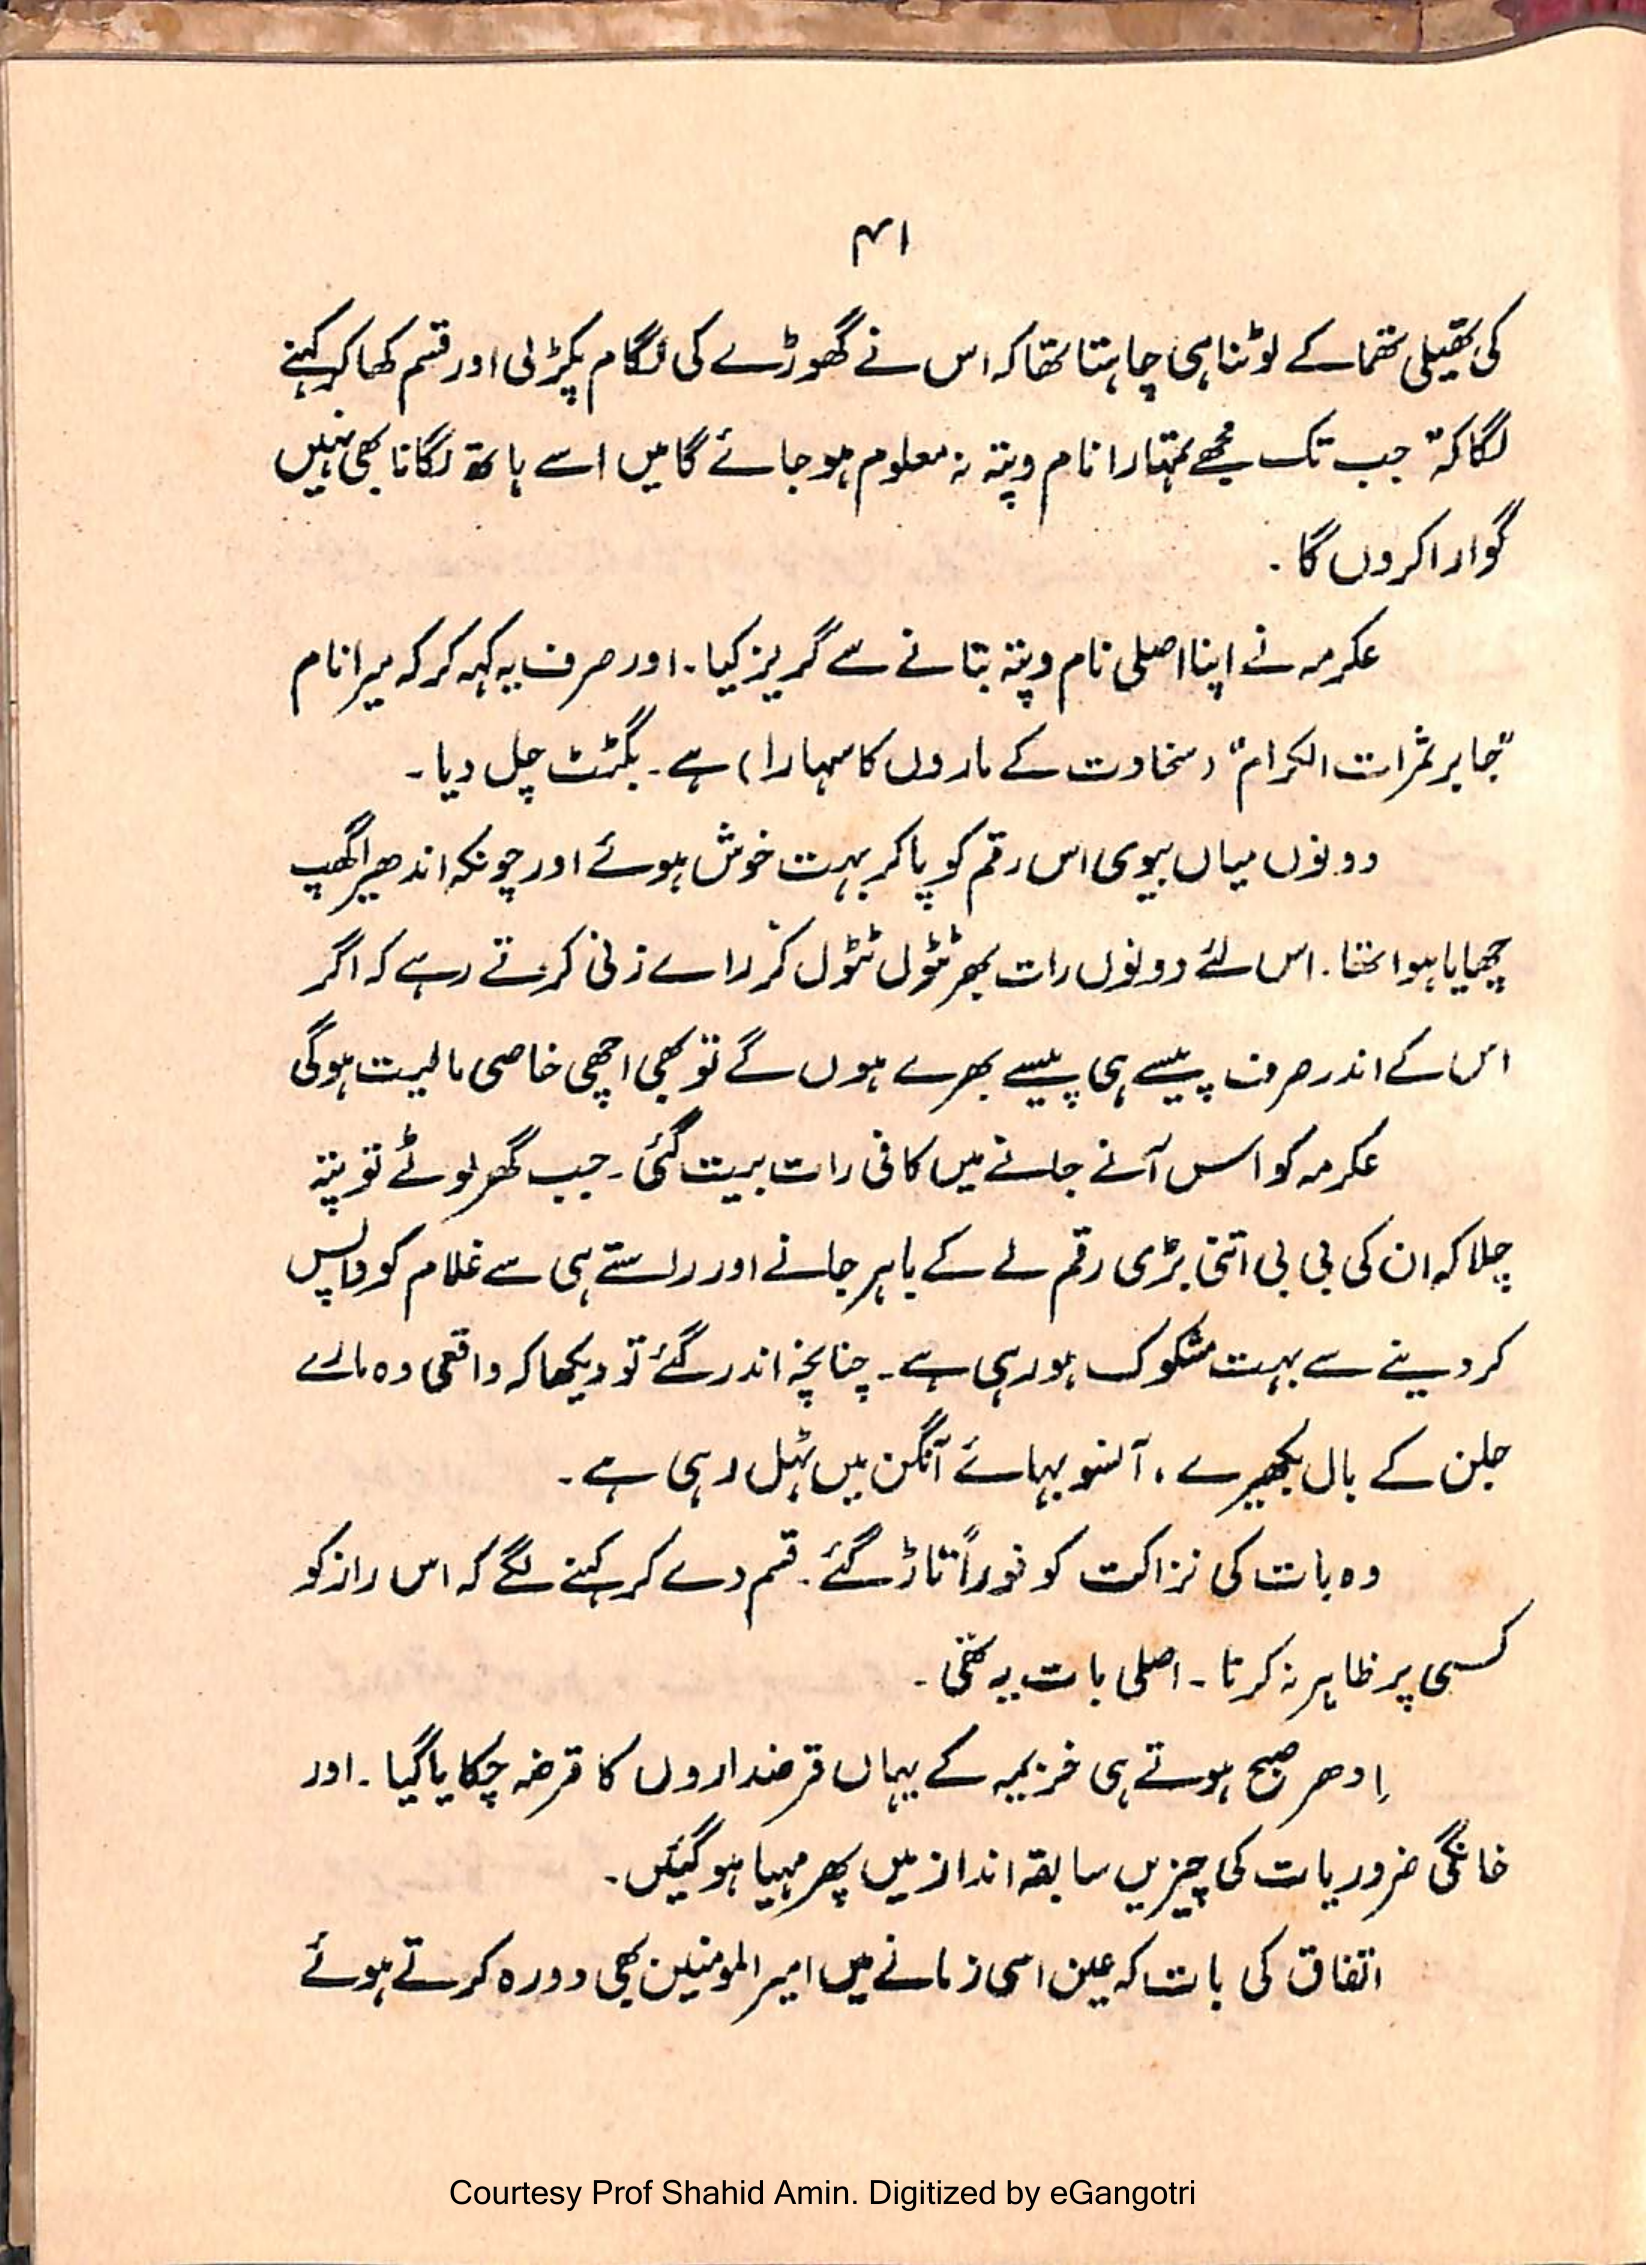 ۴۱
کی تھیلی تھما کے لوٹنا ہی چاہتا تھا کہ اس نے گھوڑے کی لگام پکڑ لی اور قسم کھا کر کہنے
لگا کہ " جب تک مجھے تمہارا نام و پتہ نہ معلوم ہو جائے گا میں اسے ہاتھ لگانا بھی نہیں
گوارا کروں گا .
عکرمہ نے اپنا اصلی نام و پتہ بتانے سے گریز کیا ۔ اور صرف یہ کہہ کر کہ میرا نام
"جابر ثمرات الکرام" (سخاوت کے ماروں کا سہارا) ہے ۔ بگٹٹ چل دیا ۔
دونوں میاں بیوی اس رقم کو پا کر بہت خوش ہوئے اور چونکہ اندھیرا گھپ
چھایا ہوا تھا ۔ اس لئے دونوں رات بھر ٹٹول ٹٹول کر رائے زنی کرتے رہے کہ اگر
اس کے اندر صرف پیسے ہی پیسے بھرے ہوں گے تو بھی اچھی خاصی مالیت ہوگی
عکرمہ کو اس آنے جانے میں کافی رات بیت گئی ۔ جب گھر لوٹے تو پتہ
چلا کہ ان کی بی بی اتنی بڑی رقم لے کے باہر جانے اور راستے ہی سے غلام کو واپس
کر دینے سے بہت مشکوک ہو رہی ہے ۔ چنانچہ اندر گئے تو دیکھا کہ واقعی وہ مارے
جلن کے بال بکھیرے ، آنسو بہائے آنگن میں ٹہل رہی ہے ۔
وہ بات کی نزاکت کو فوراً تاڑ گئے ۔ قسم دے کر کہنے لگے کہ اس راز کو
کسی پر ظاہر نہ کرنا ۔ اصلی بات یہ تھی ۔
اِدھر صبح ہوتے ہی خزیمہ کے یہاں قرضداروں کا قرضہ چکایا گیا ۔ اور
خانگی ضروریات کی چیزیں سابقہ انداز میں پھر مہیا ہو گئیں ۔
اتفاق کی بات کہ عین اسی زمانے میں امیر المومنین بھی دورہ کرتے ہوئے
Courtesy Prof Shahid Amin. Digitized by eGangotri